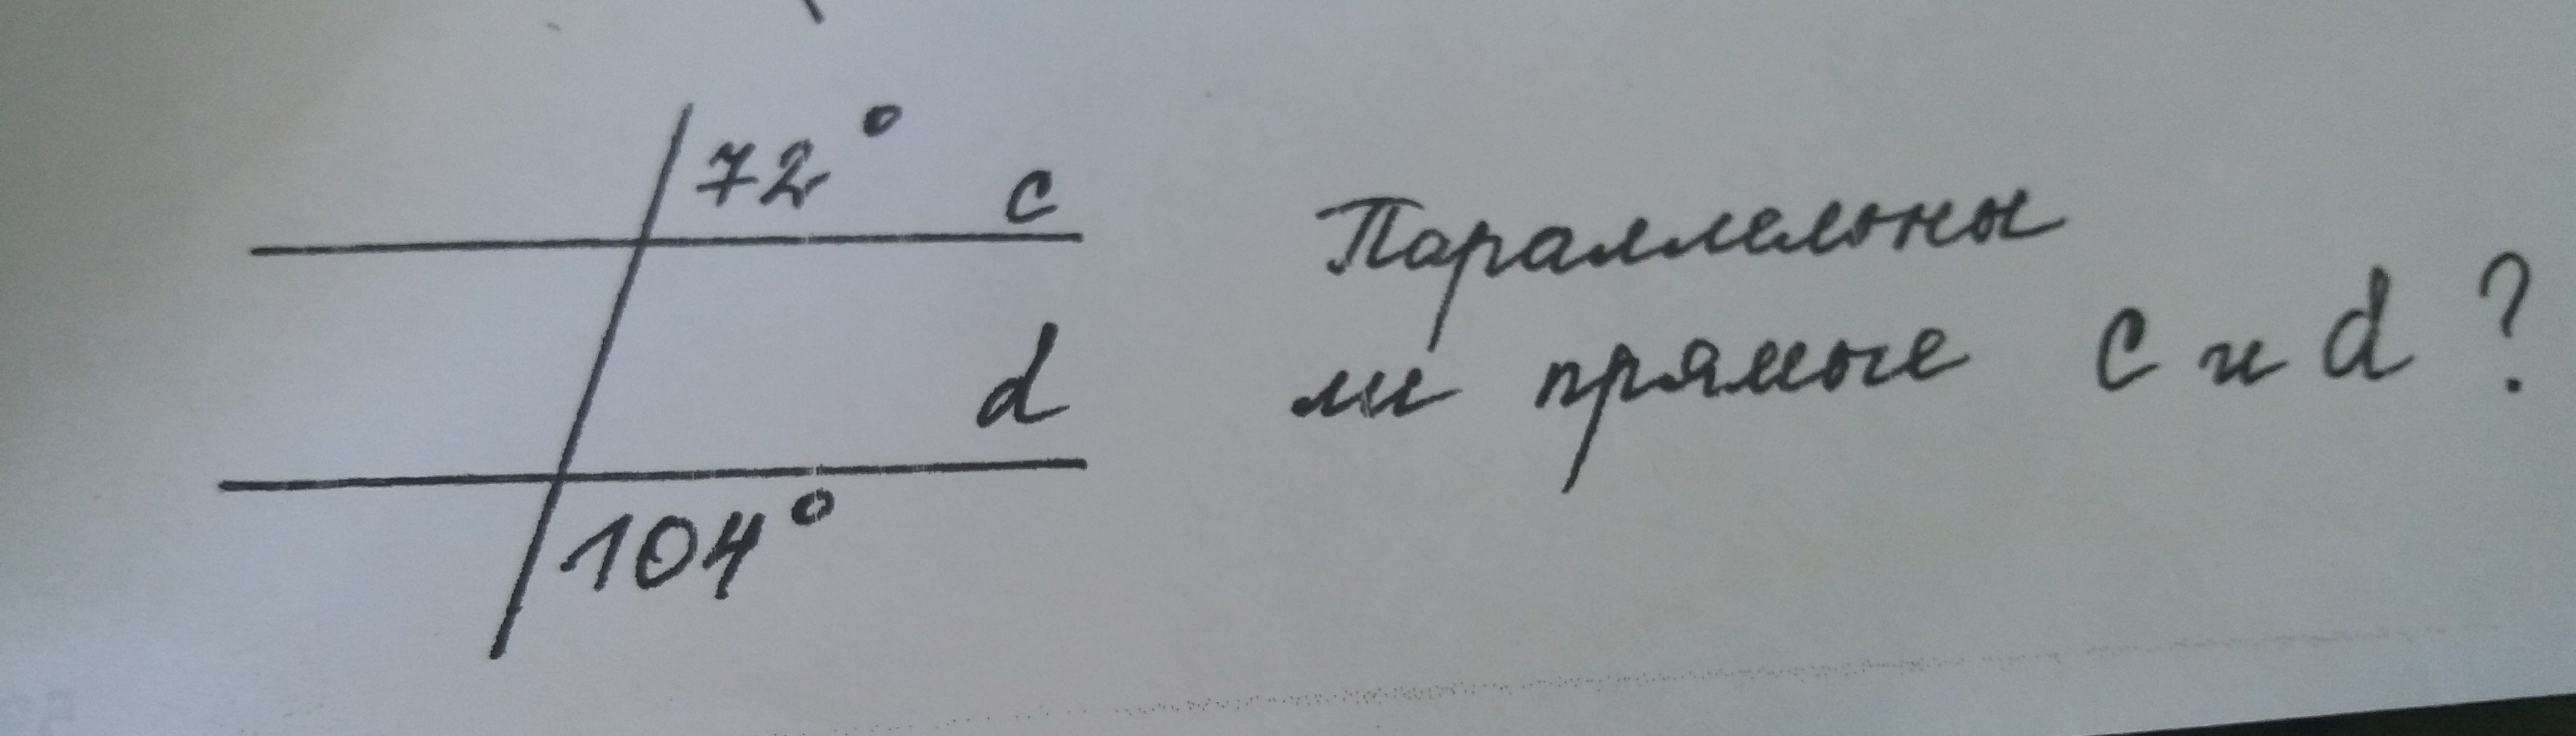 72°
c
d
104°
Параллельны
ли прямые c и d ?